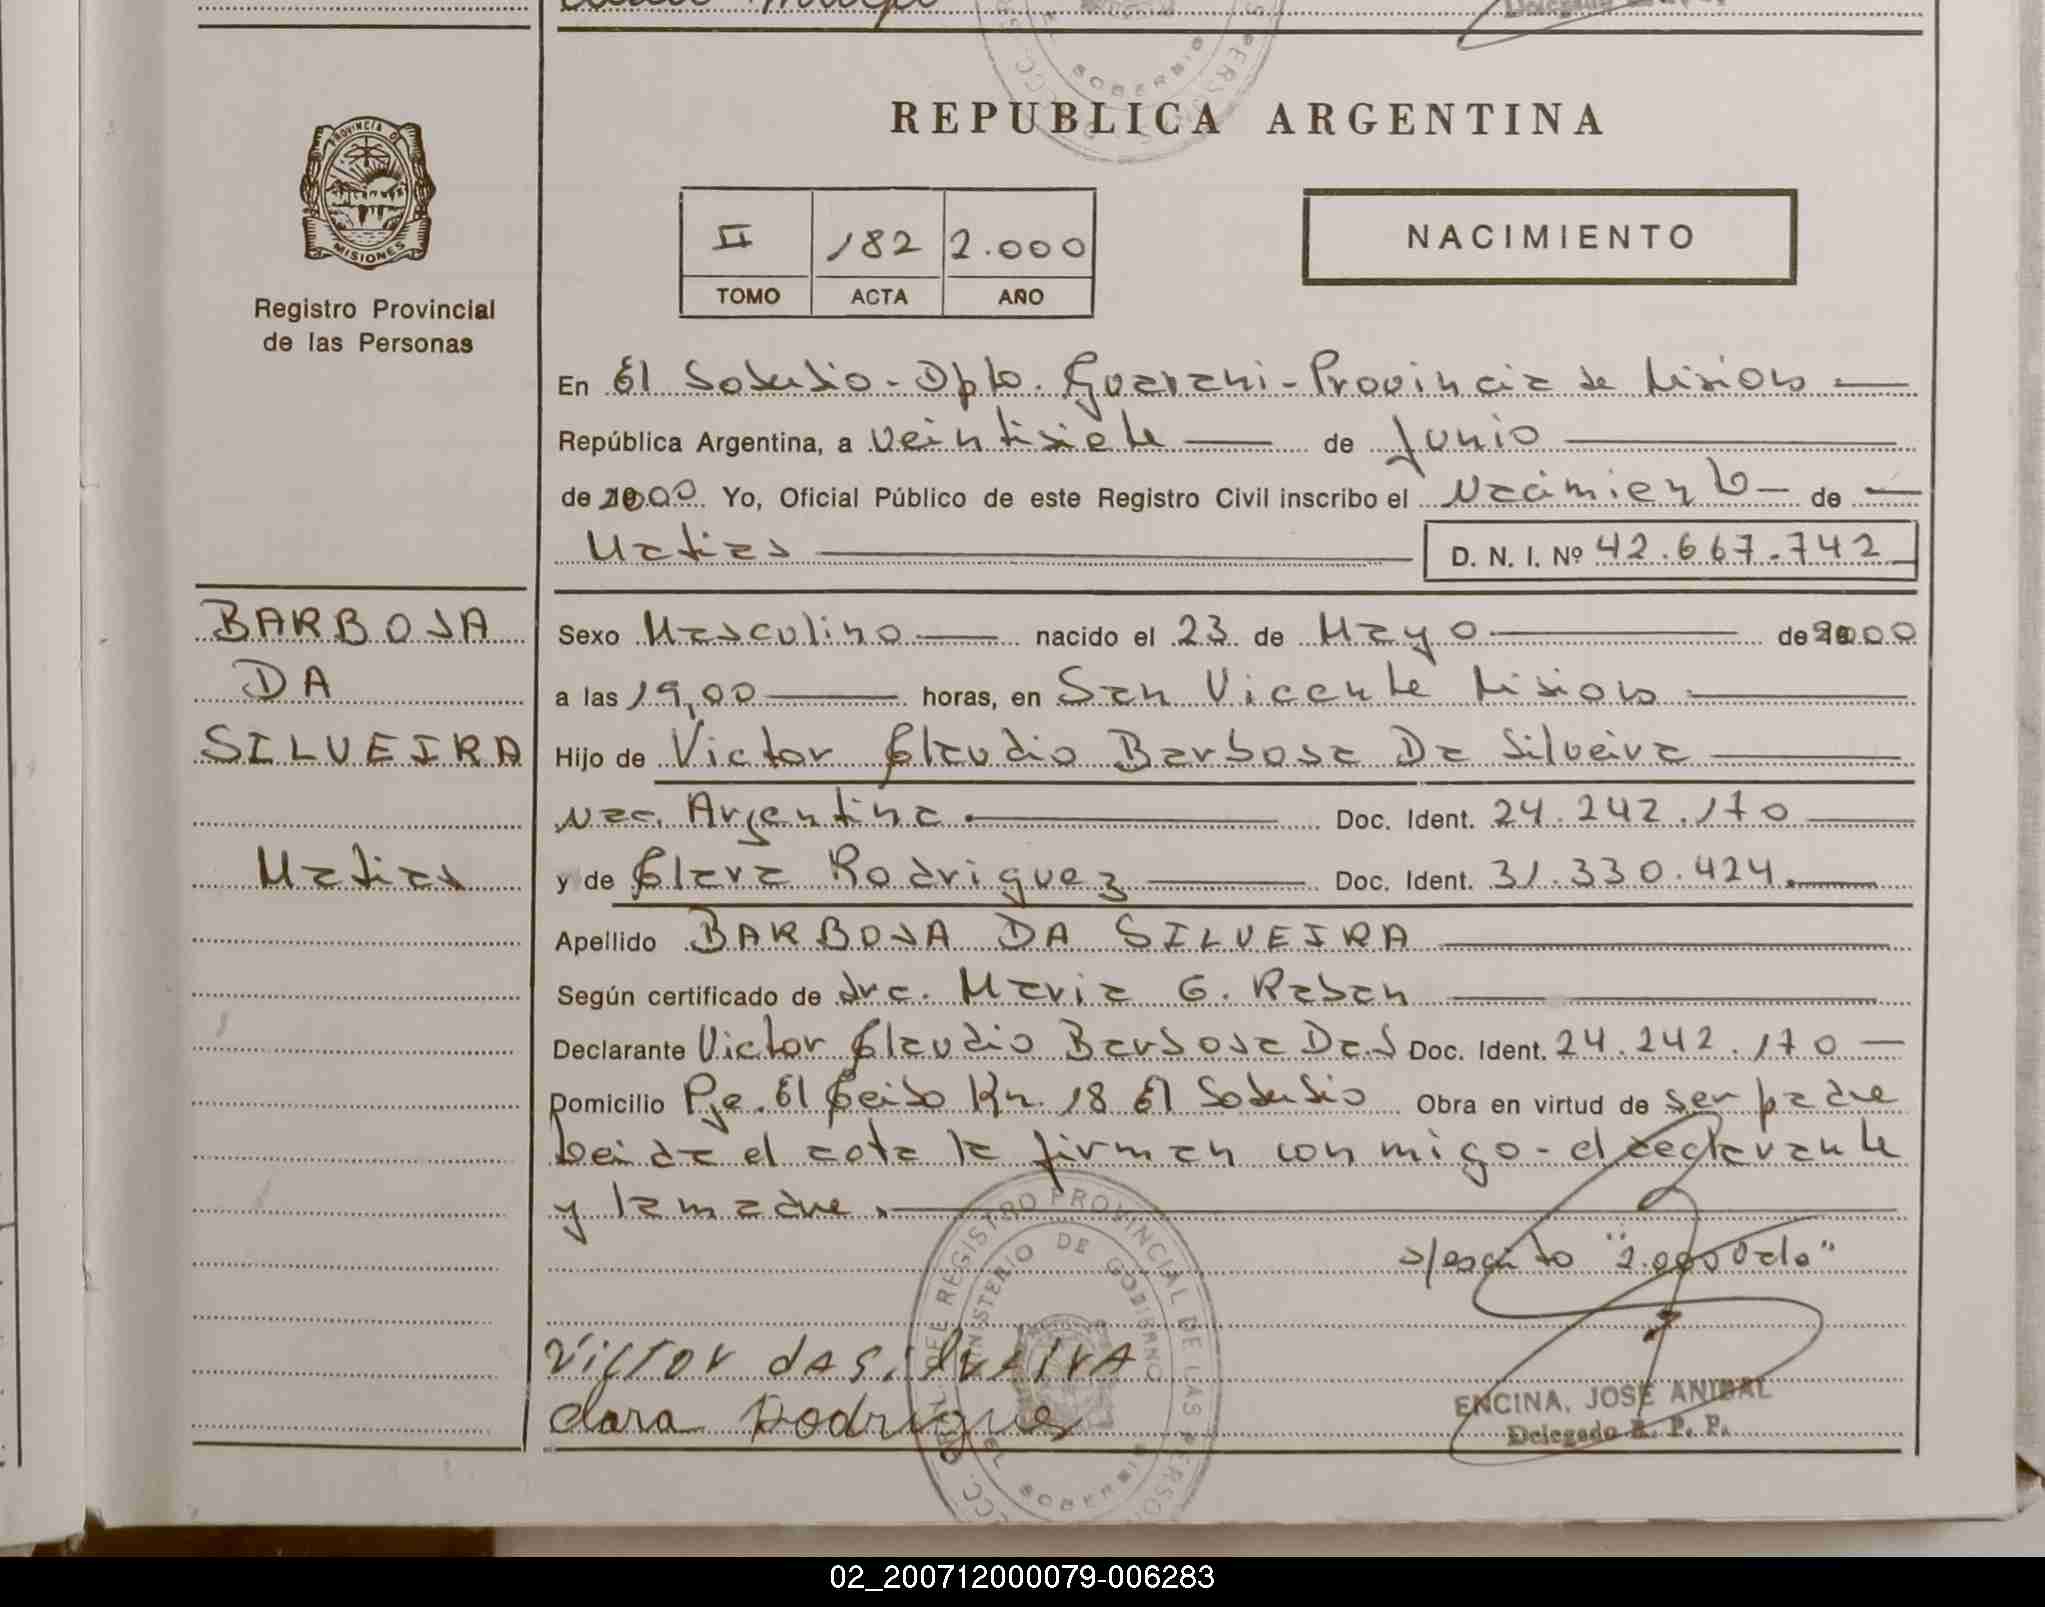 REPUBLICA ARGENTINA
PROVINCIA D
MISIONES
Registro Provincial
de las Personas
II 182 2.000
TOMO ACTA AÑO
NACIMIENTO
En El Soberbio - Dpto. Guarani - Provincia de Misiones
República Argentina, a veintisiete de Junio
de 2000 Yo, Oficial Público de este Registro Civil inscribo el Nacimiento de
Matias D. N. I. Nº 42.667.742
BARBOSA
DA
SILVEIRA
Matias
Sexo Masculino nacido el 23 de Mayo de 2000
a las 19,00 horas, en San Vicente Misiones
Hijo de Victor Claudio Barbosa Da Silveira
Nac. Argentina. Doc. Ident. 24.242.170
y de Clara Rodriguez Doc. Ident. 31.330.424.
Apellido BARBOSA DA SILVEIRA
Según certificado de dra. Maria G. Raban
Declarante Victor Claudio Barbosa Da S Doc. Ident. 24.242.170
Domicilio Pje. El Ceibo Km. 18 El Soberbio Obra en virtud de ser padre
Leida el acta la firman con migo - el declarante
y la madre.
s/escrito "2.000 Vale"
DEL REGISTRO PROVINCIAL DE LAS PERSO
MINISTERIO DE GOBIERNO
EL SOBERBIO
Victor da silveira
Clara Rodrigues
ENCINA, JOSE ANIBAL
Delegado R. P. P.
02_200712000079-006283